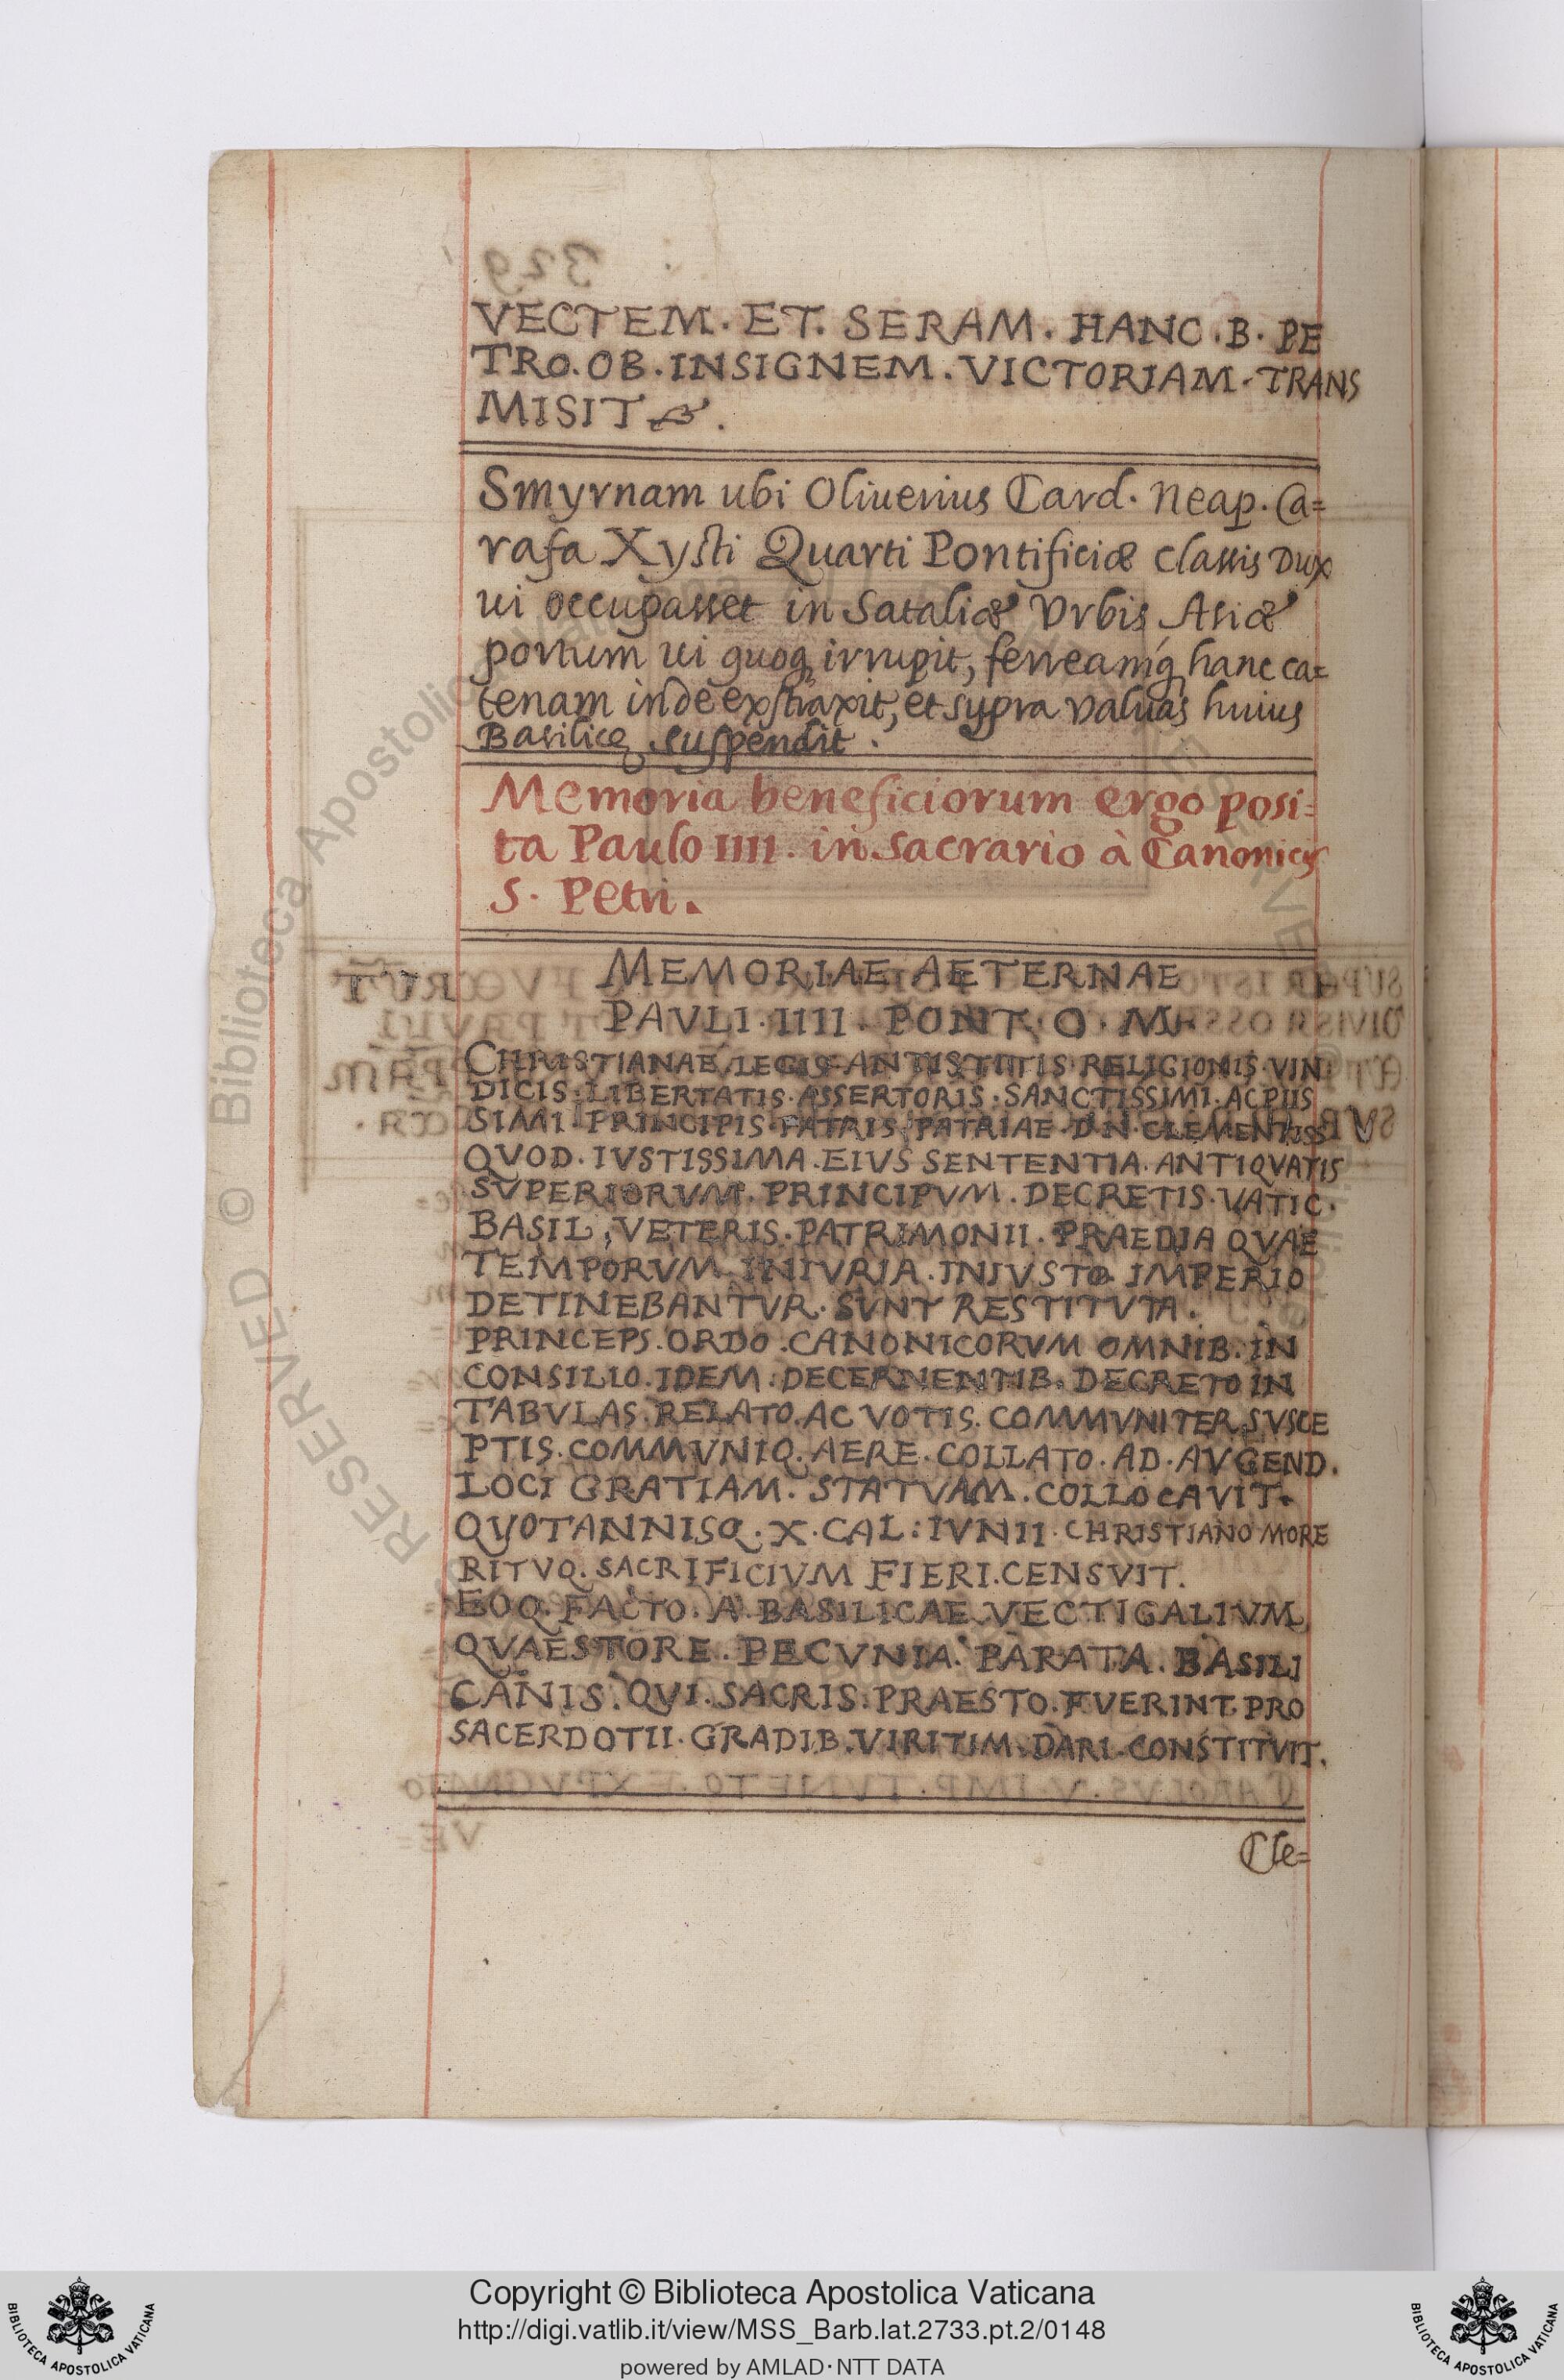 VECTEM. ET. SERAM. HANC. B. PE
TRO. OB. INSIGNEM. VICTORIAM. TRANS
MISIT.
Smyrnam ubi Oliuerius Card. Neap. Ca=
rafa Xysti Quarti Pontificiæ classis Dux
ui occupasset in Sataliæ Vrbis Asiæ
portum ui quoq irrupit, ferreamq hanc ca=
tenam inde exstraxit, et supra valuas huius
Basilicę suspendit.
Memoria beneficiorum ergo posi=
ta Paulo IIII. in sacrario à Canonicis
S. Petri.
MEMORIAE AETERNAE
PAVLI. IIII. PONT. O. M.
CHRISTIANAE. LEGIS. ANTISTITIS. RELIGIONIS. VIN
DICIS. LIBERTATIS. ASSERTORIS. SANCTISSIMI. AC PIIS
SIMI. PRINCIPIS. PATRIS. PATRIAE. D. N. CLEMENTISS
QVOD. IVSTISSIMA. EIVS SENTENTIA. ANTIQVATIS
SVPERIORVM. PRINCIPVM. DECRETIS. VATIC.
BASIL, VETERIS. PATRIMONII. PRAEDIA QVAE
TEMPORVM. INIVRIA. INIVSTO. IMPERIO
DETINEBANTVR. SVNT RESTITVTA.
PRINCEPS. ORDO. CANONICORVM OMNIB. IN
CONSILIO. IDEM. DECERNENTIB. DECRETO IN
TABVLAS. RELATO. AC VOTIS. COMMVNITER. SVSCE
PTIS. COMMVNIQ. AERE. COLLATO. AD. AVGEND.
LOCI GRATIAM. STATVAM. COLLOCAVIT.
QVOTANNISQ. X. CAL: IVNII. CHRISTIANO MORE
RITVQ. SACRIFICIVM FIERI. CENSVIT.
EOQ. FACTO. A. BASILICAE. VECTIGALIVM
QVAESTORE. PECVNIA. PARATA. BASILI
CANIS. QVI. SACRIS. PRAESTO. FVERINT. PRO
SACERDOTII. GRADIB. VIRITIM. DARI. CONSTITVIT.
Cle=
RESERVED © Biblioteca Apostolica
Copyright © Biblioteca Apostolica Vaticana
http://digi.vatlib.it/view/MSS_Barb.lat.2733.pt.2/0148
powered by AMLAD·NTT DATA
BIBLIOTECA APOSTOLICA VATICANA
BIBLIOTECA APOSTOLICA VATICANA